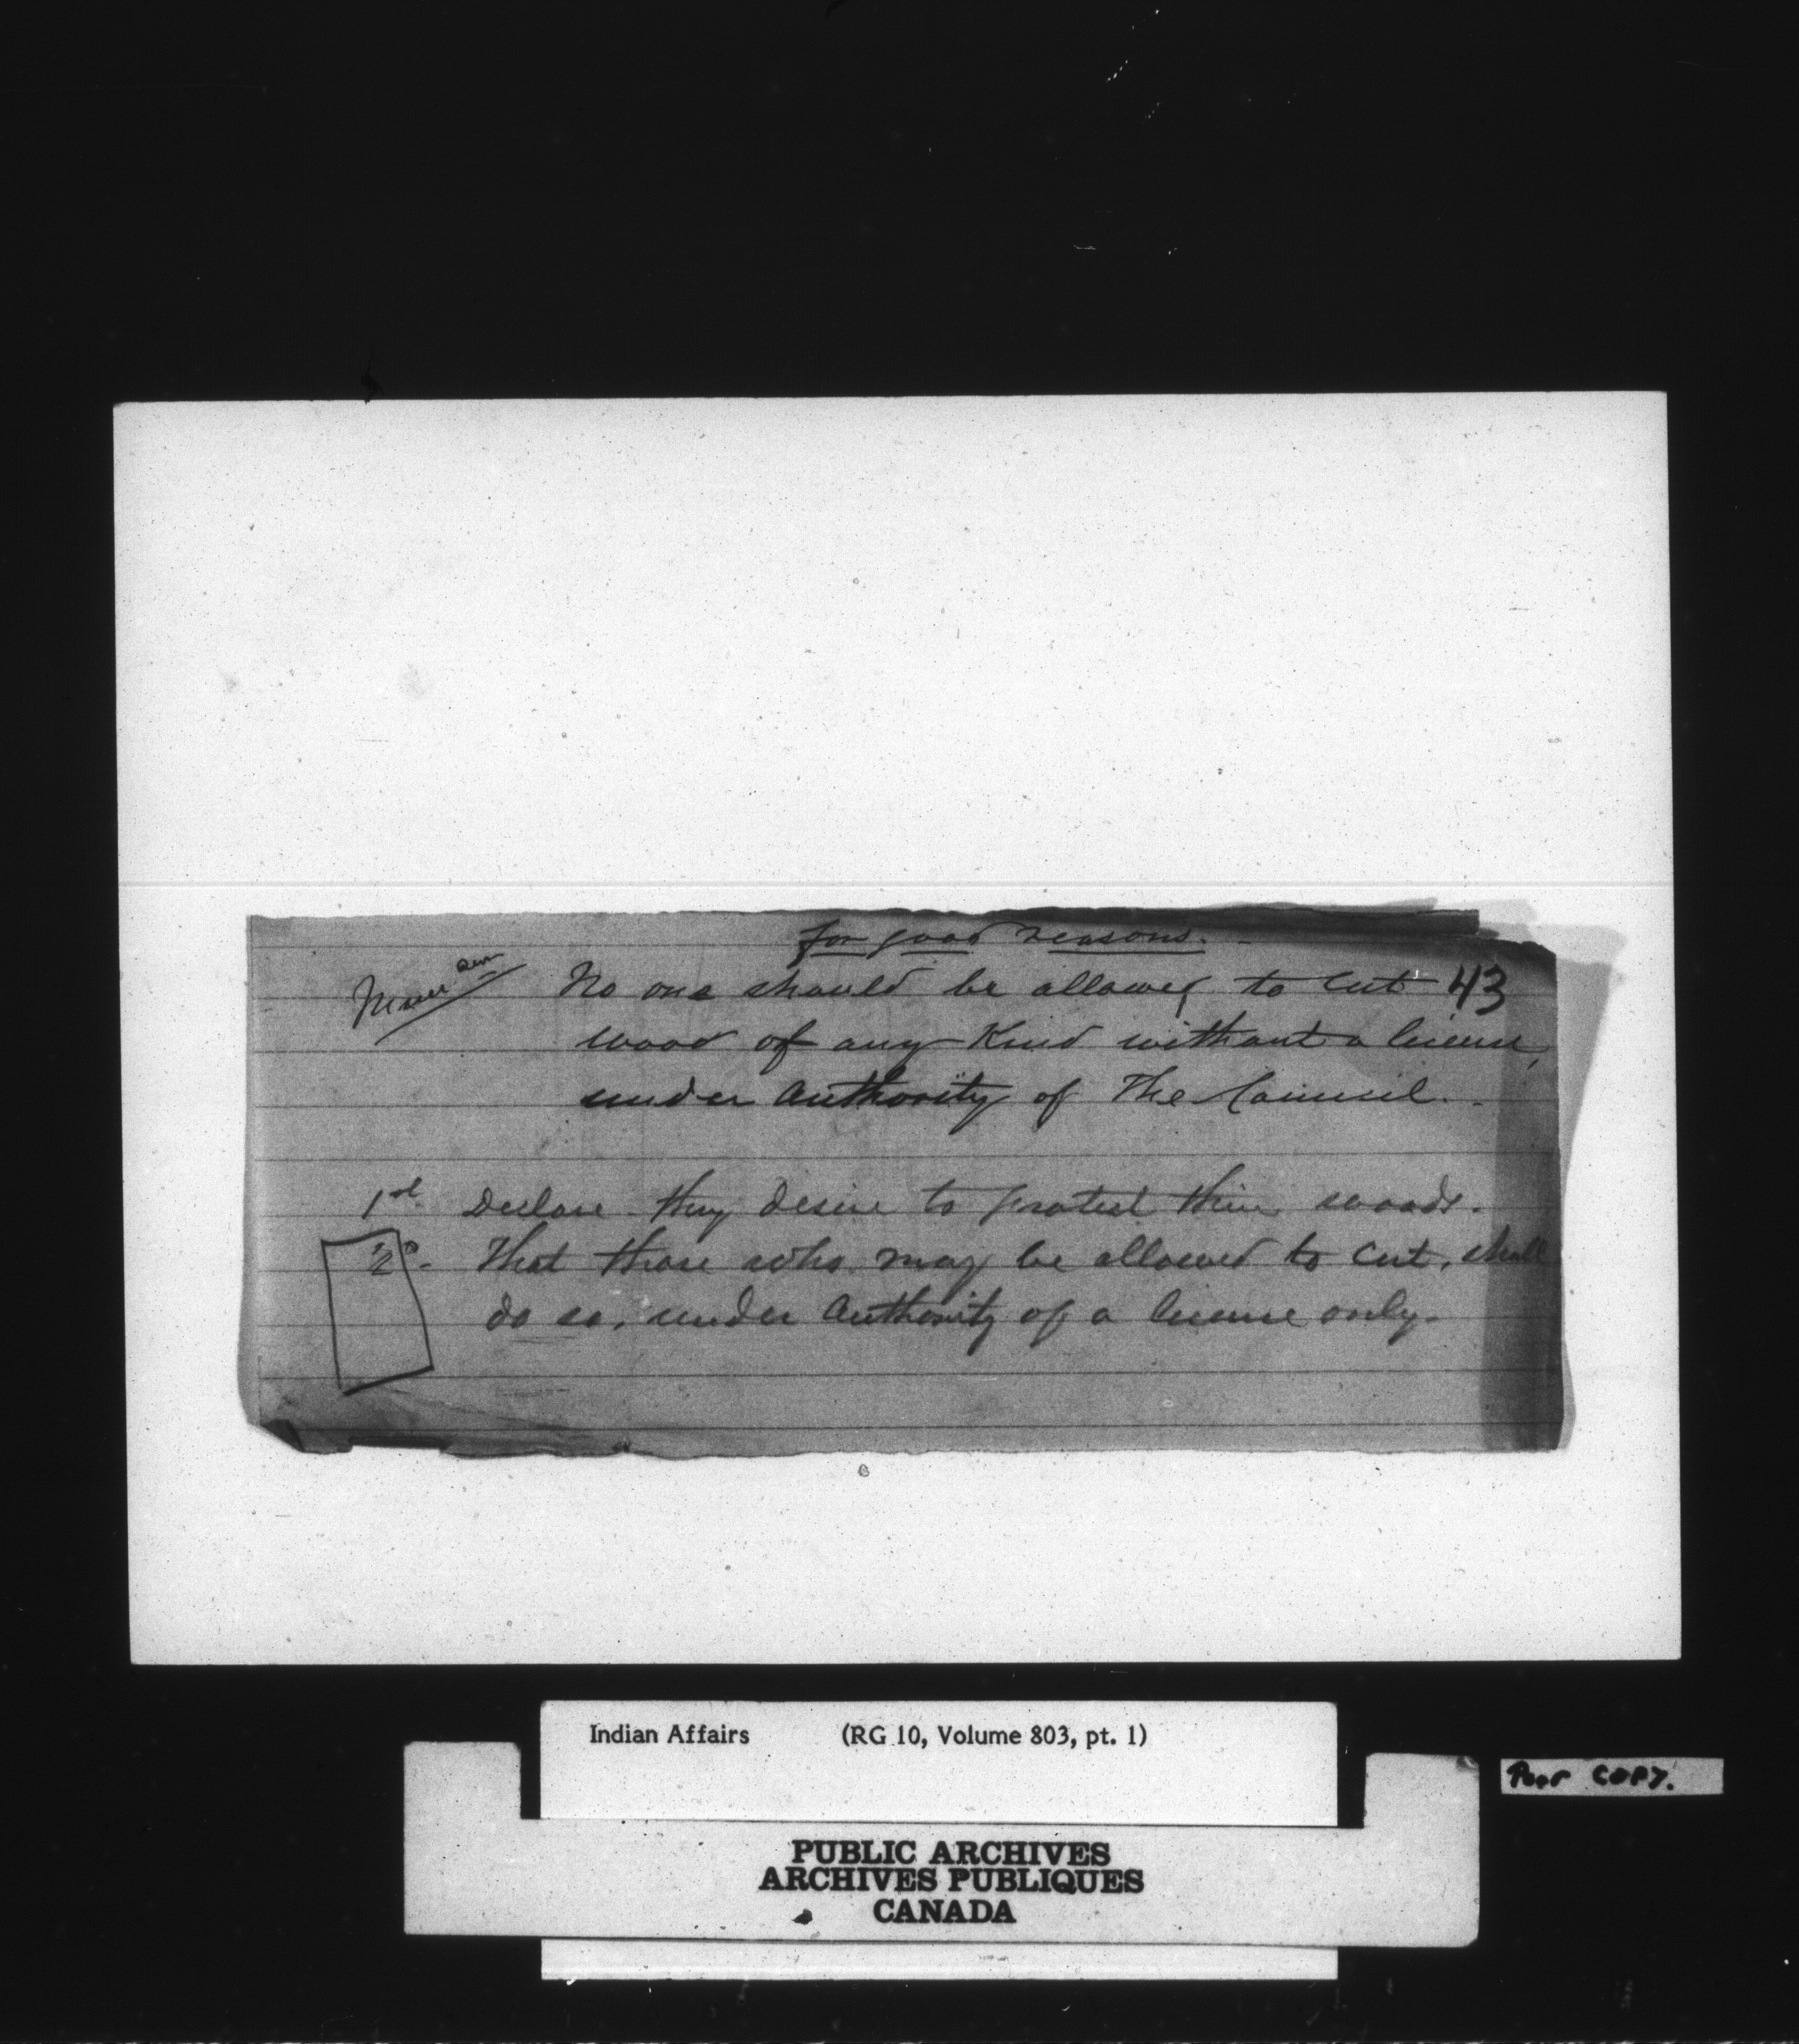 for good reasons.
No one should be allowed to cut 43
wood of any Kind without a license,
under authority of The Council.
1st Declare they desire to protect their woods.
2o. That those who may be allowed to cut, shall
do so, under authority of a license only.
Indian Affairs (RG 10, Volume 803, pt. 1)
Poor COPY.
PUBLIC ARCHIVES
ARCHIVES PUBLIQUES
CANADA